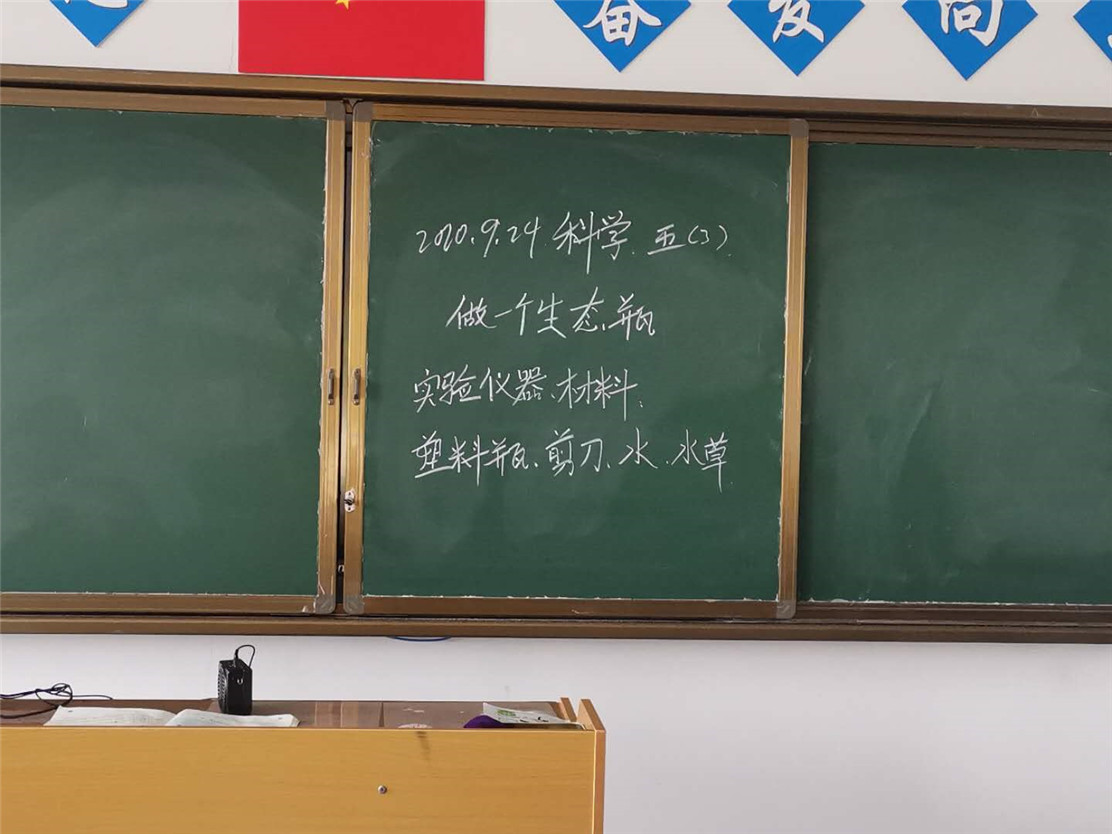 奋发向
2020.9.24 科学. 五(3)
做一个生态瓶
实验仪器、材料:
塑料瓶、剪刀、水、水草